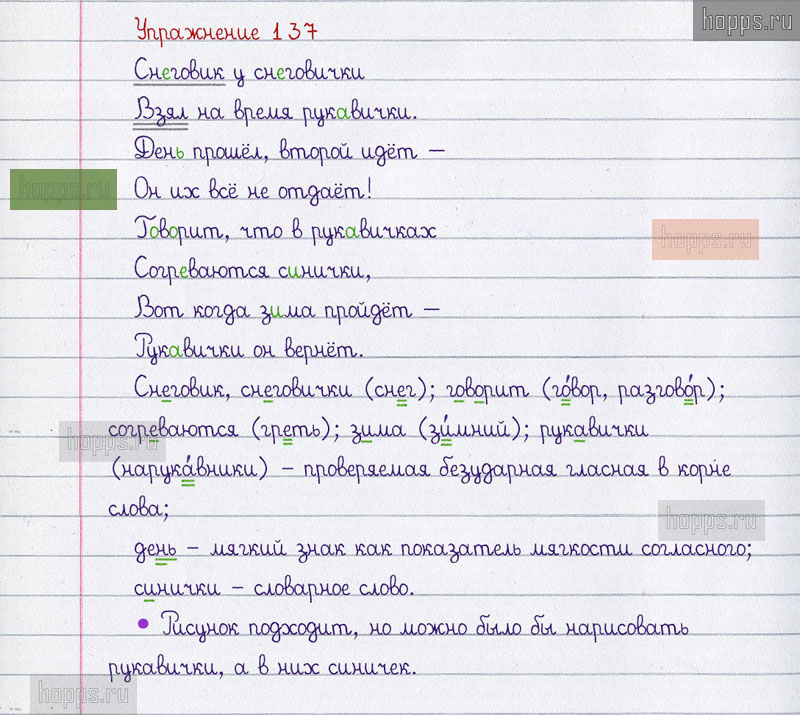 hopps.ru
Упражнение 137
Снеговик у снеговички
Взял на время рукавички.
День прошёл, второй идёт –
hopps.ru
Он их всё не отдаёт!
Говорит, что в рукавичках
hopps.ru
Согреваются синички,
Вот когда зима пройдёт –
Рукавички он вернёт.
Снеговик, снеговички (снег); говорит (го́вор, разгово́р);
hopps.ru
согреваются (греть); зима (зи́мний); рукавички
(нарука́вники) – проверяемая безударная гласная в корне
слова;
hopps.ru
день – мягкий знак как показатель мягкости согласного;
синички – словарное слово.
• Рисунок подходит, но можно было бы нарисовать
рукавички, а в них синичек.
hopps.ru